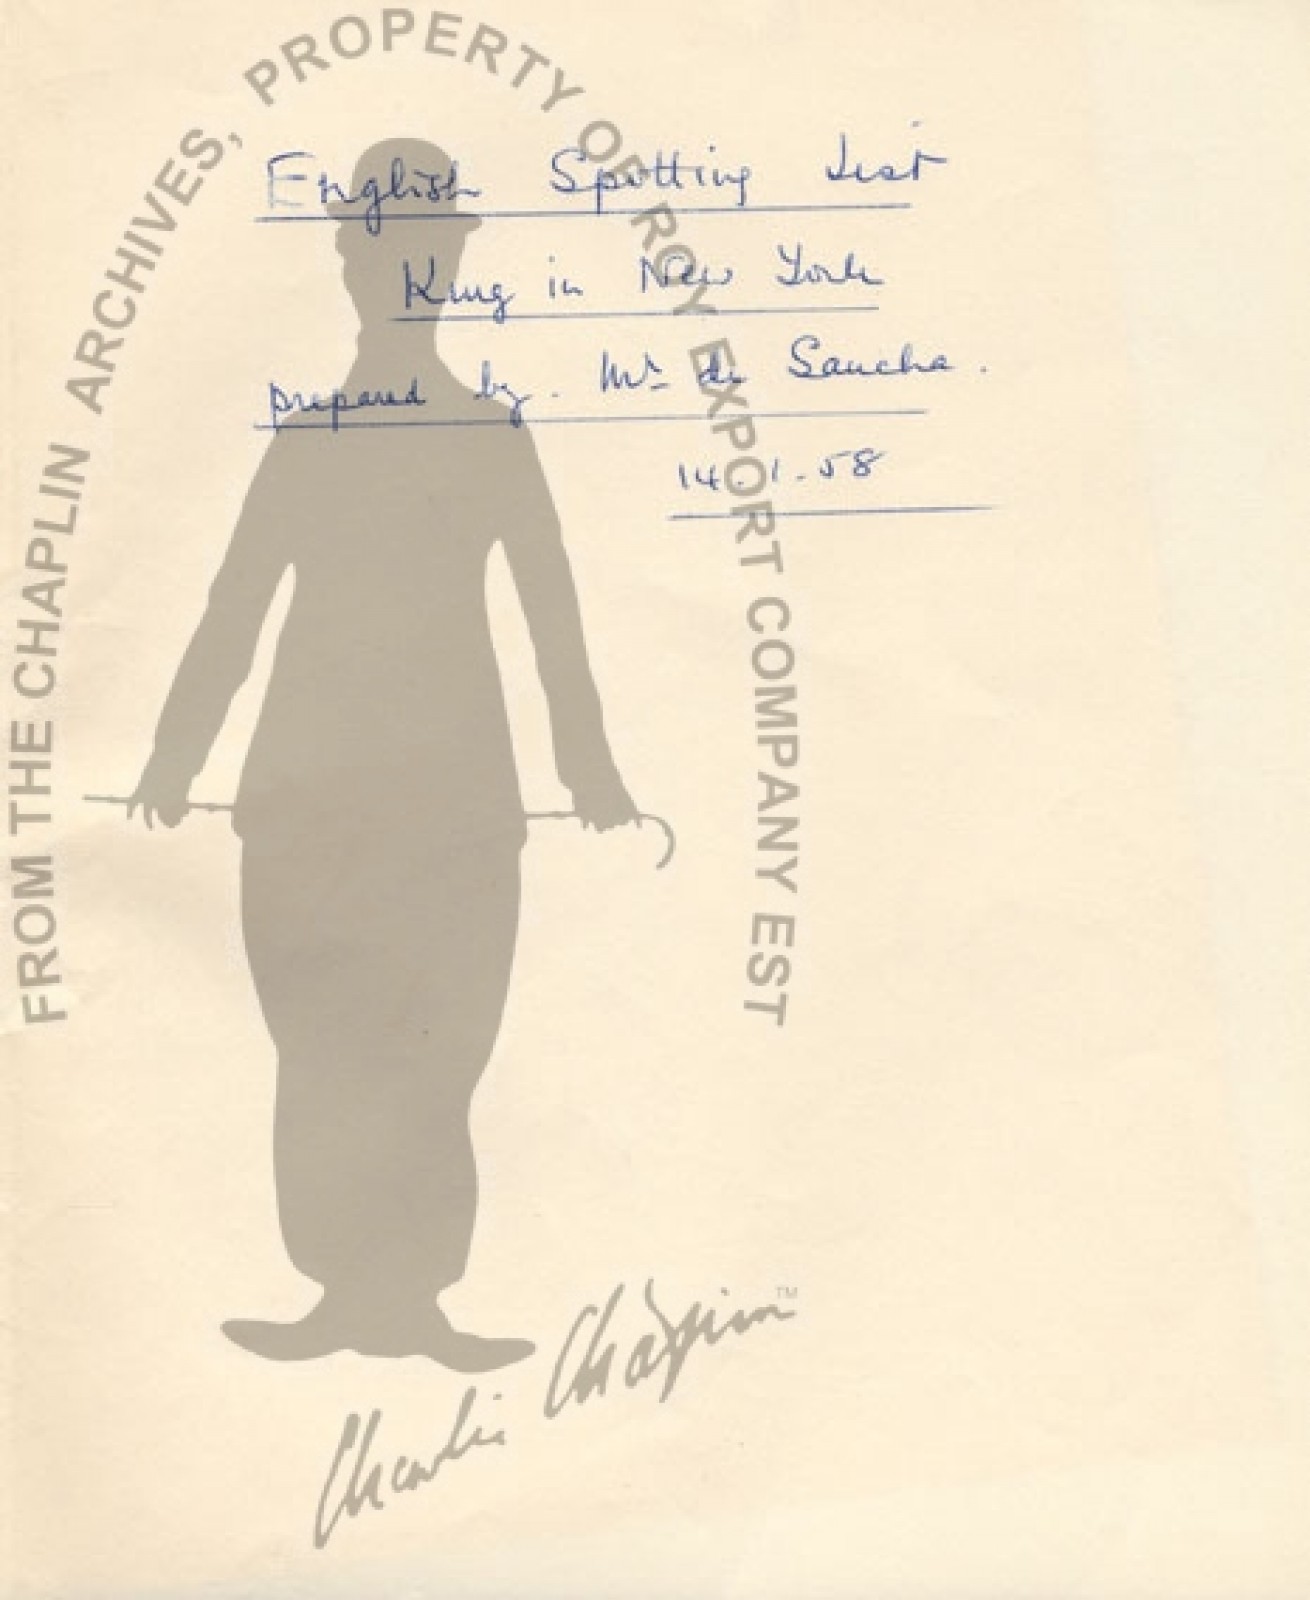 English Spotting List
King in New York
prepared by. Mr de Sancha.
14.1.58
FROM THE CHAPLIN ARCHIVES, PROPERTY OF ROY EXPORT COMPANY EST
Charlie Chaplin TM